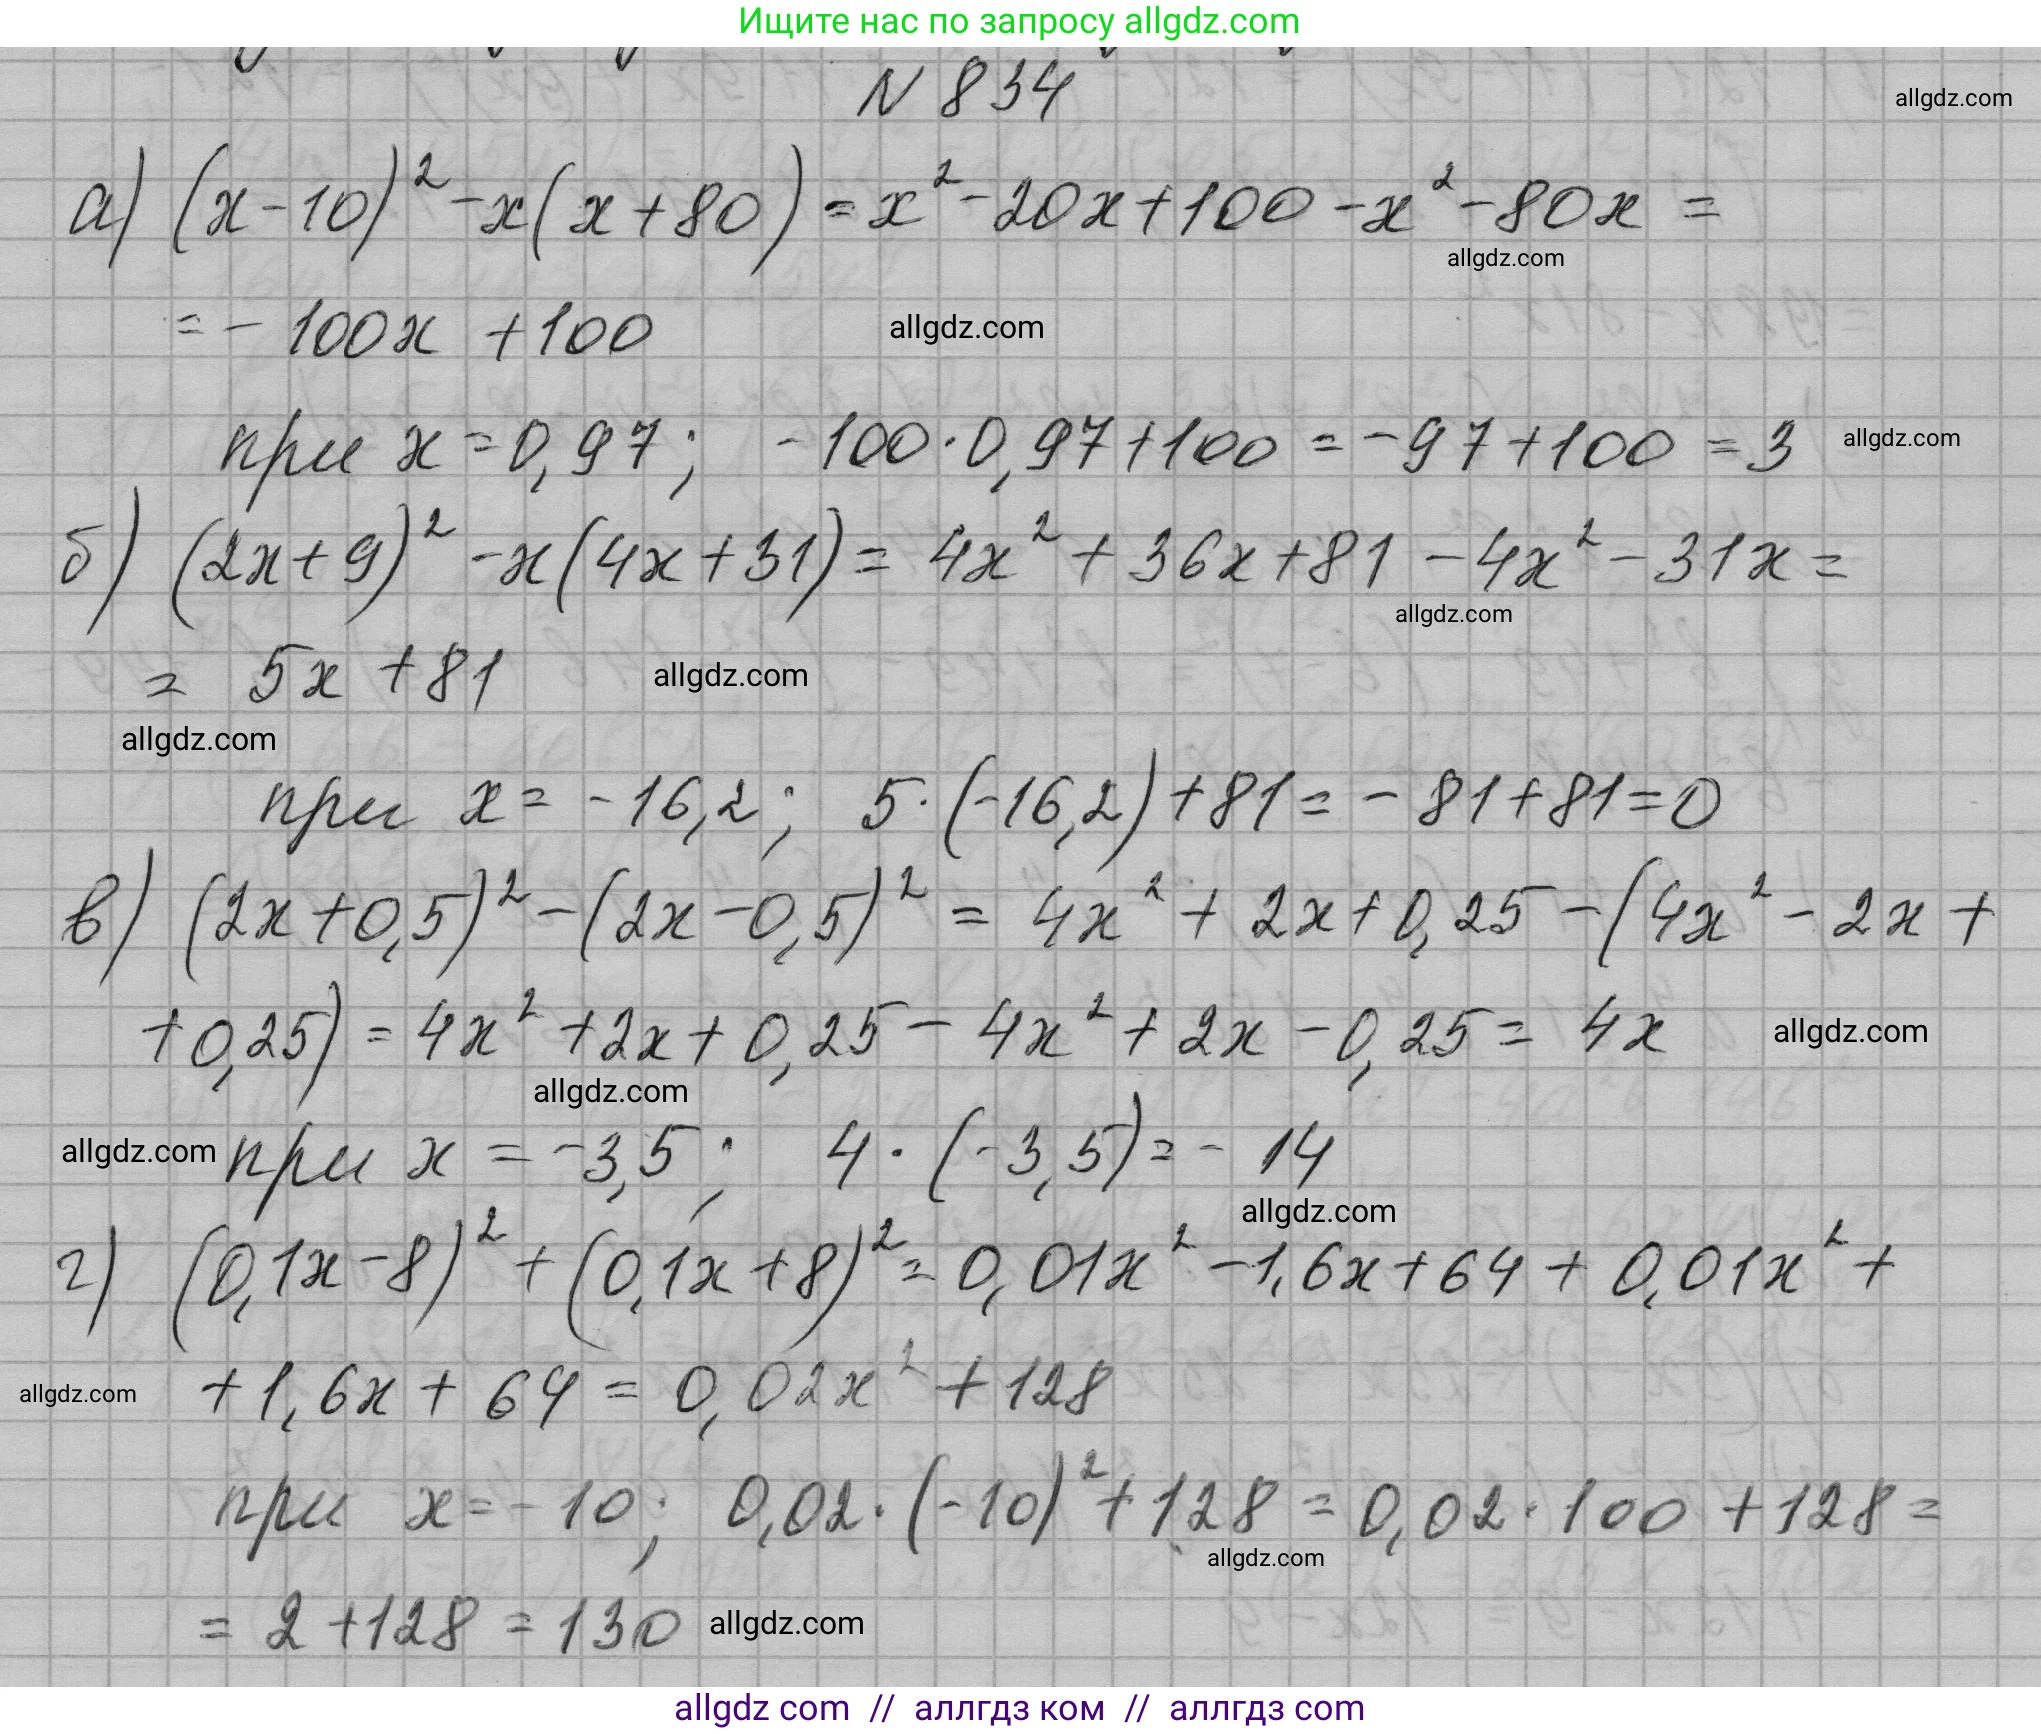 Ищите нас по запросу allgdz.com
N 834
allgdz.com
а) (x-10)² -x(x+80) = x² -20x+100 -x² -80x =
allgdz.com
= - 100x +100
allgdz.com
при x=0,97; -100·0,97+100 = -97+100 =3
allgdz.com
б) (2x+9)² -x(4x+31) = 4x² + 36x+81 -4x² -31x =
allgdz.com
= 5x +81
allgdz.com
allgdz.com
при x= -16,2; 5·(-16,2)+81= -81+81=0
в) (2x+0,5)² -(2x-0,5)² = 4x² + 2x+0,25 -(4x² - 2x +
+0,25) = 4x² +2x+0,25 - 4x² + 2x -0,25 = 4x
allgdz.com
allgdz.com
allgdz.com
при x = -3,5; 4 · (-3,5) = - 14
allgdz.com
г) (0,1x-8)² + (0,1x+8)² = 0,01x² -1,6x+64 + 0,01x² +
+1,6x+ 64 = 0,02x² +128
allgdz.com
при x= -10; 0,02·(-10)² +128 = 0,02·100 +128 =
allgdz.com
= 2 +128 = 130
allgdz.com
allgdz com // аллгдз ком // аллгдз com